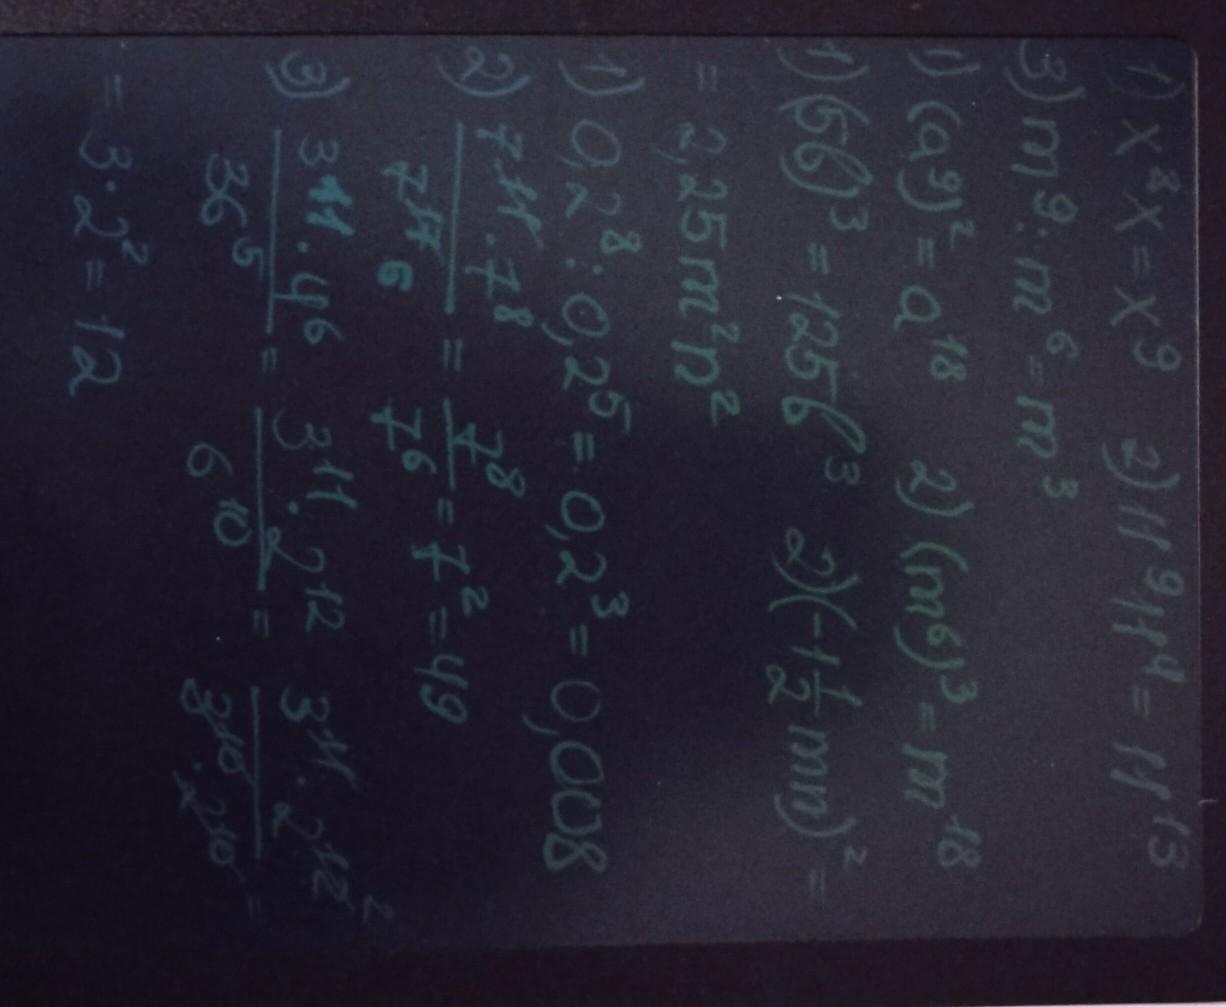 1) x⁸x = x⁹ 2) 11⁹ 11⁴ = 11¹³
3) m⁹ : m⁶ = m³
1) (a⁹)² = a¹⁸ 2) (m⁶)³ = m¹⁸
1) (5b)³ = 125b³ 2) (-1 1/2 mn)² =
= 2,25m²n²
1) 0,2⁸ : 0,2⁵ = 0,2³ = 0,008
2) (7¹¹ · 7⁸)/(7¹¹ 6) = 7⁸/7⁶ = 7² = 49
3) (3¹¹ · 4⁶)/36⁵ = (3¹¹ · 2¹²)/6¹⁰ = (3¹¹ · 2¹² ²)/(3¹⁰ · 2¹⁰) =
= 3 · 2² = 12